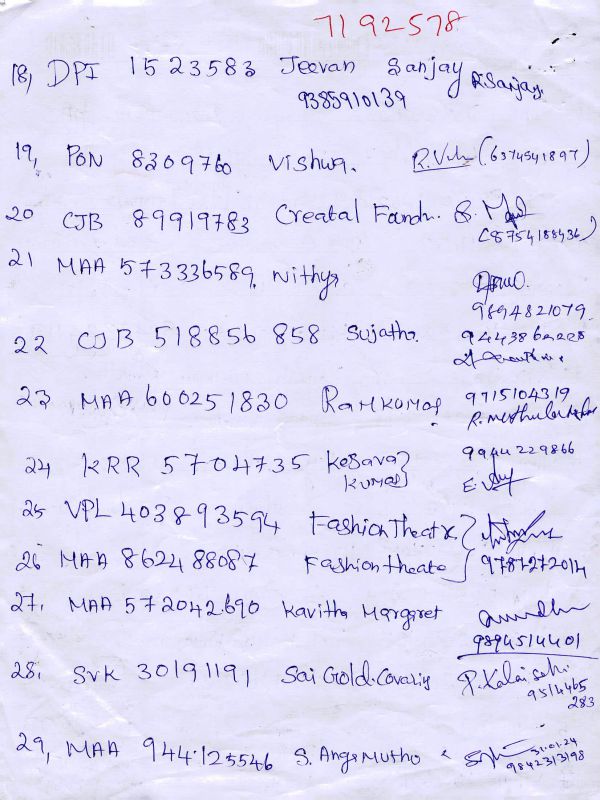 7192578
18, DPI 1523583 Jeevan Sanjay R.Sanjay.
9385910139
19, PON 8309760 Vishwa. (6374541897)
20 CJB 89919783 Creatal Foundn.
(8754188436)
21 MAA 573336589, Nithya
9894821079.
22 CJB 518856 858 Sujatha. 9443862228
23 MAA 600251830 Ramkumar 9715104319
24 KRR 5704735 Kesava 9944229866
Kumar
25 VPL 403893594 Fashion Theatre
26 MAA 862488087 Fashion theate 9787272014
27. MAA 572042690 Kavitha Margaret
9894514401
28. SVK 30191191 Sai Gold.Covariy P.Kalaiselvi
9514465
283
29, MAA 944125546 S. Angamuthu 31.01.24
9842313198